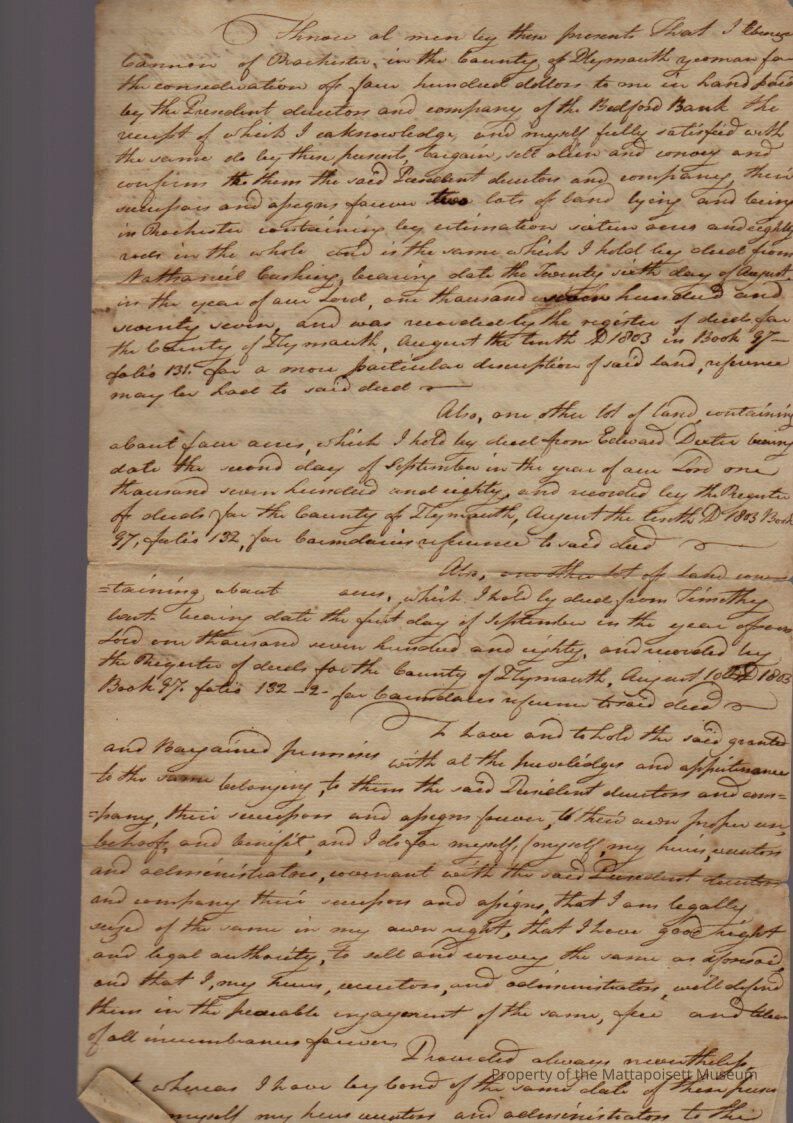 Know al men by these presents that I Ebenezer
Cannon of Rochester, in the County of Plymouth yeoman for
the consideration of four hundred dollars to me in hand paid
by the President directors and company of the Bedford Bank the
receipt of which I acknowledge, and myself fully satisfied with
the same do by these presents, bargain, sell alien and convey and
confirm to them the said President directors and company, their
successors and assigns forever two lots of land lying and being
in Rochester containing by estimation sixteen acres and eighty
rods in the whole and is the same which I hold by deed from
Nathaniel Cushing, bearing date the Twenty sixth day of August
in the year of our Lord, one thousand seven hundred and
seventy seven, and was recorded by the register of deeds for
the County of Plymouth, August the tenth D 1803 in Book 97-
folio 131. for a more particular description of said land, reference
may be had to said deed
Also, one other lot of land containing
about four acres, which I hold by deed from Edward Dexter bearing
date the second day of September in the year of our Lord one
thousand seven hundred and eighty, and recorded by the Register
of deeds for the County of Plymouth, August the tenth D 1803 Book
97, folio 132, for boundaries reference to said deed
Also, one other lot of land con=
=taining about acres, which I hold by deed from Timothy
bearing date the first day of September in the year of our
Lord one thousand seven hundred and eighty, and recorded by
the Register of deeds for the County of Plymouth, August 10th D 1803
Book 97. folio 132-2- for boundaries reference to said deed
To have and to hold the said granted
and Bargained premises with al the priveledges and appurtenance
to the same belonging, to them the said President directors and com=
=pany, their successors and assigns forever, to their own proper use
behoof, and benefit, and I do for myself, my heirs, executors
and administrators, covenant with the said President directors
and company their successors and assigns, that I am legally
seized of the same in my own right, that I have good right
and legal authority, to sell and convey the same as aforesaid,
and that I, my heirs, executors, and administrators, will defend
them in the peaceable enjoyment of the same, free and clear
of all incumbrances forever
Provided always nevertheless
whereas I have by bond of the same date of these presents
myself my heirs executors and administrators to the
Property of the Mattapoisett Museum